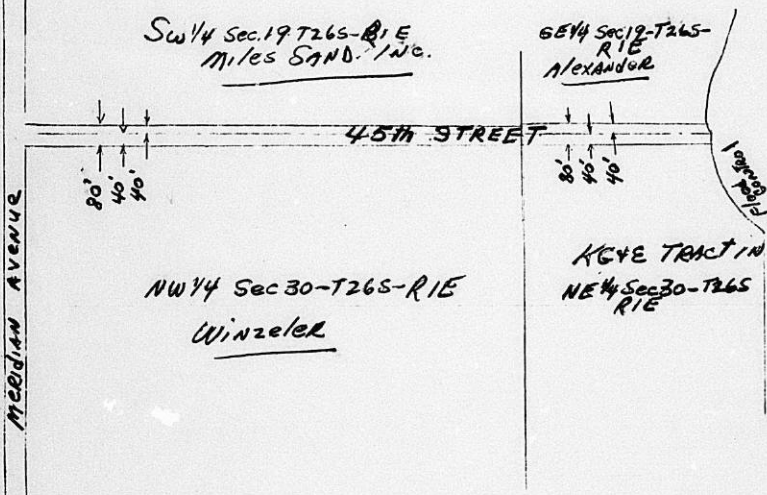 SW 1/4 Sec. 19. T26S-R1E
Miles SAND. INC.
SE 1/4 Sec 19-T26S-
R1E
AlexANDER
45th STREET
80'
40'
40'
80'
40'
40'
Flood
Control
MERIDIAN AVENUE
NW 1/4 Sec 30-T26S-R1E
Winzeler
KG&E TRACT IN
NE 1/4 Sec 30-T26S
R1E